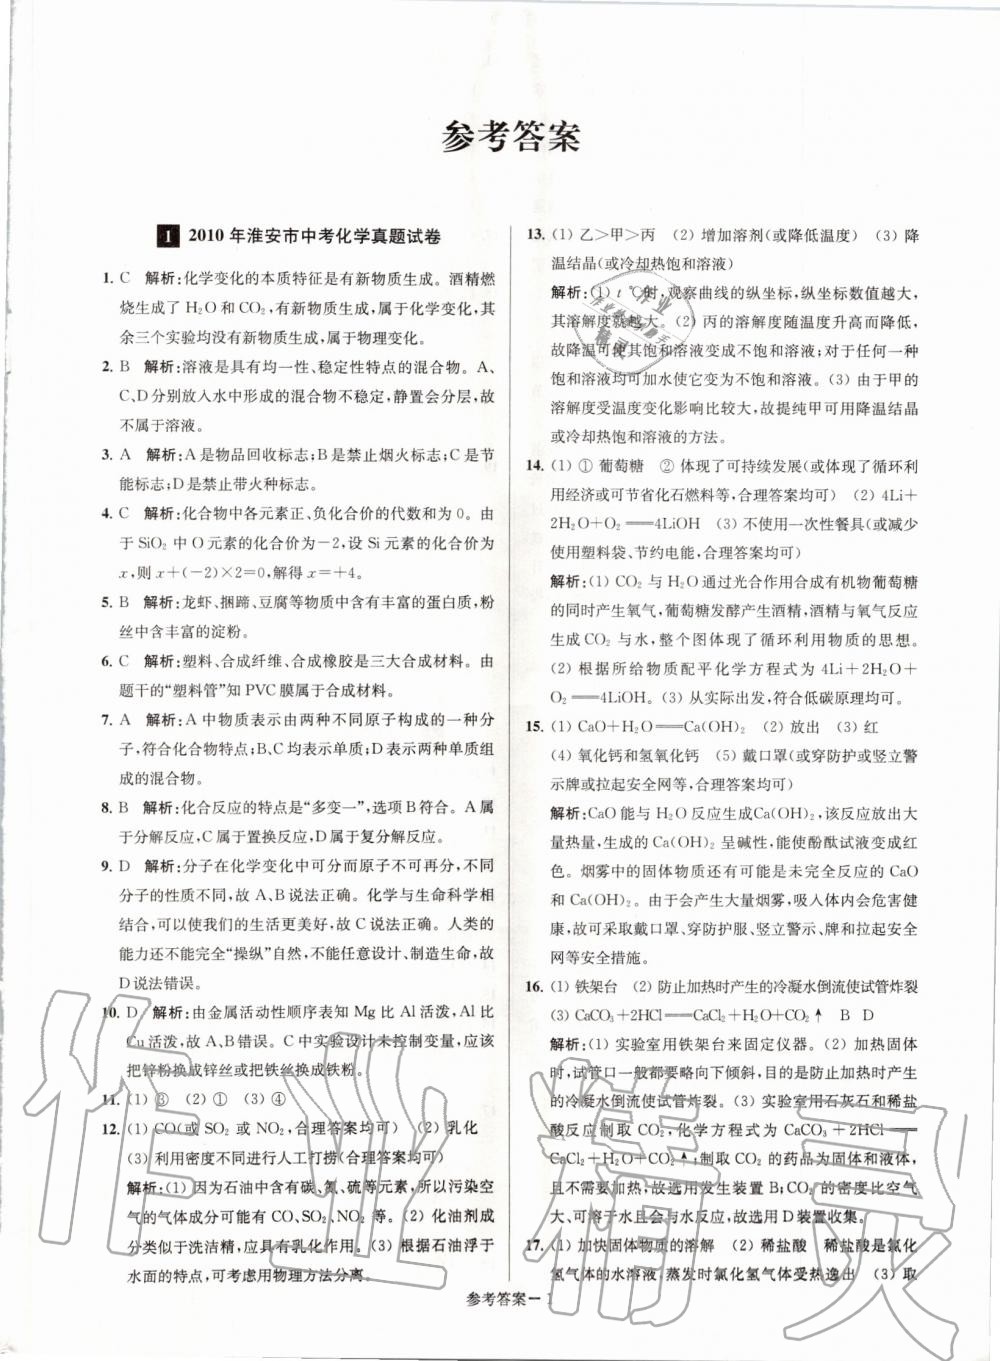 参考答案
1 2010年淮安市中考化学真题试卷
1. C 解析:化学变化的本质特征是有新物质生成。酒精燃
烧生成了H₂O和CO₂,有新物质生成,属于化学变化,其
余三个实验均没有新物质生成,属于物理变化。
2. B 解析:溶液是具有均一性、稳定性特点的混合物。A、
C、D分别放入水中形成的混合物不稳定,静置会分层,故
不属于溶液。
3. A 解析:A是物品回收标志;B是禁止烟火标志;C是节
能标志;D是禁止带火种标志。
4. C 解析:化合物中各元素正、负化合价的代数和为0。由
于SiO₂中O元素的化合价为-2,设Si元素的化合价为
x,则x+(-2)×2=0,解得x=+4。
5. B 解析:龙虾、捆蹄、豆腐等物质中含有丰富的蛋白质,粉
丝中含丰富的淀粉。
6. C 解析:塑料、合成纤维、合成橡胶是三大合成材料。由
题干的“塑料管”知PVC膜属于合成材料。
7. A 解析:A中物质表示由两种不同原子构成的一种分
子,符合化合物特点;B、C均表示单质;D表示两种单质组
成的混合物。
8. B 解析:化合反应的特点是“多变一”,选项B符合。A属
于分解反应,C属于置换反应,D属于复分解反应。
9. D 解析:分子在化学变化中可分而原子不可再分,不同
分子的性质不同,故A、B说法正确。化学与生命科学相
结合,可以使我们的生活更美好,故C说法正确。人类的
能力还不能完全“操纵”自然,不能任意设计、制造生命,故
D说法错误。
10. D 解析:由金属活动性顺序表知Mg比Al活泼,Al比
Cu活泼,故A、B错误。C中实验设计未控制变量,应该
把锌粉换成锌丝或把铁丝换成铁粉。
11. (1) ③ (2) ① (3) ④
12. (1) CO(或SO₂或NO₂,合理答案均可) (2) 乳化
(3) 利用密度不同进行人工打捞(合理答案均可)
解析:(1) 因为石油中含有碳、氮、硫等元素,所以污染空
气的气体成分可能有CO、SO₂、NO₂等。(2) 化油剂成
分类似于洗洁精,应具有乳化作用。(3) 根据石油浮于
水面的特点,可考虑用物理方法分离。
13. (1) 乙>甲>丙 (2) 增加溶剂(或降低温度) (3) 降
温结晶(或冷却热饱和溶液)
解析:(1) t ℃时,观察曲线的纵坐标,纵坐标数值越大,
其溶解度就越大。(2) 丙的溶解度随温度升高而降低,
故降温可使其饱和溶液变成不饱和溶液;对于任何一种
饱和溶液均可加水使它变为不饱和溶液。(3) 由于甲的
溶解度受温度变化影响比较大,故提纯甲可用降温结晶
或冷却热饱和溶液的方法。
14. (1) ① 葡萄糖 ② 体现了可持续发展(或体现了循环利
用经济或可节省化石燃料等,合理答案均可) (2) 4Li+
2H₂O+O₂══4LiOH (3) 不使用一次性餐具(或减少
使用塑料袋、节约电能,合理答案均可)
解析:(1) CO₂与H₂O通过光合作用合成有机物葡萄糖
的同时产生氧气,葡萄糖发酵产生酒精,酒精与氧气反应
生成CO₂与水,整个图体现了循环利用物质的思想。
(2) 根据所给物质配平化学方程式为4Li+2H₂O+
O₂══4LiOH。(3) 从实际出发,符合低碳原理均可。
15. (1) CaO+H₂O══Ca(OH)₂ (2) 放出 (3) 红
(4) 氧化钙和氢氧化钙 (5) 戴口罩(或穿防护或竖立警
示牌或拉起安全网等,合理答案均可)
解析:CaO能与H₂O反应生成Ca(OH)₂,该反应放出大
量热量,生成的Ca(OH)₂呈碱性,能使酚酞试液变成红
色。烟雾中的固体物质还有可能是未完全反应的CaO
和Ca(OH)₂。由于会产生大量烟雾,吸入体内会危害健
康,故可采取戴口罩、穿防护服、竖立警示、牌和拉起安全
网等安全措施。
16. (1) 铁架台 (2) 防止加热时产生的冷凝水倒流使试管炸裂
(3) CaCO₃+2HCl══CaCl₂+H₂O+CO₂↑ B D
解析:(1) 实验室用铁架台来固定仪器。(2) 加热固体
时,试管口一般都要略向下倾斜,目的是防止加热时产生
的冷凝水倒流使试管炸裂。(3) 实验室用石灰石和稀盐
酸反应制取CO₂,化学方程式为CaCO₃+2HCl══
CaCl₂+H₂O+CO₂↑;制取CO₂的药品为固体和液体,且
不需要加热,故选用发生装置B;CO₂的密度比空气
大、可溶于水且会与水反应,故选用D装置收集。
17. (1) 加快固体物质的溶解 (2) 稀盐酸 稀盐酸是氯化
氢气体的水溶液,蒸发时氯化氢气体受热逸出 (3) 取
参考答案-1
作业精灵